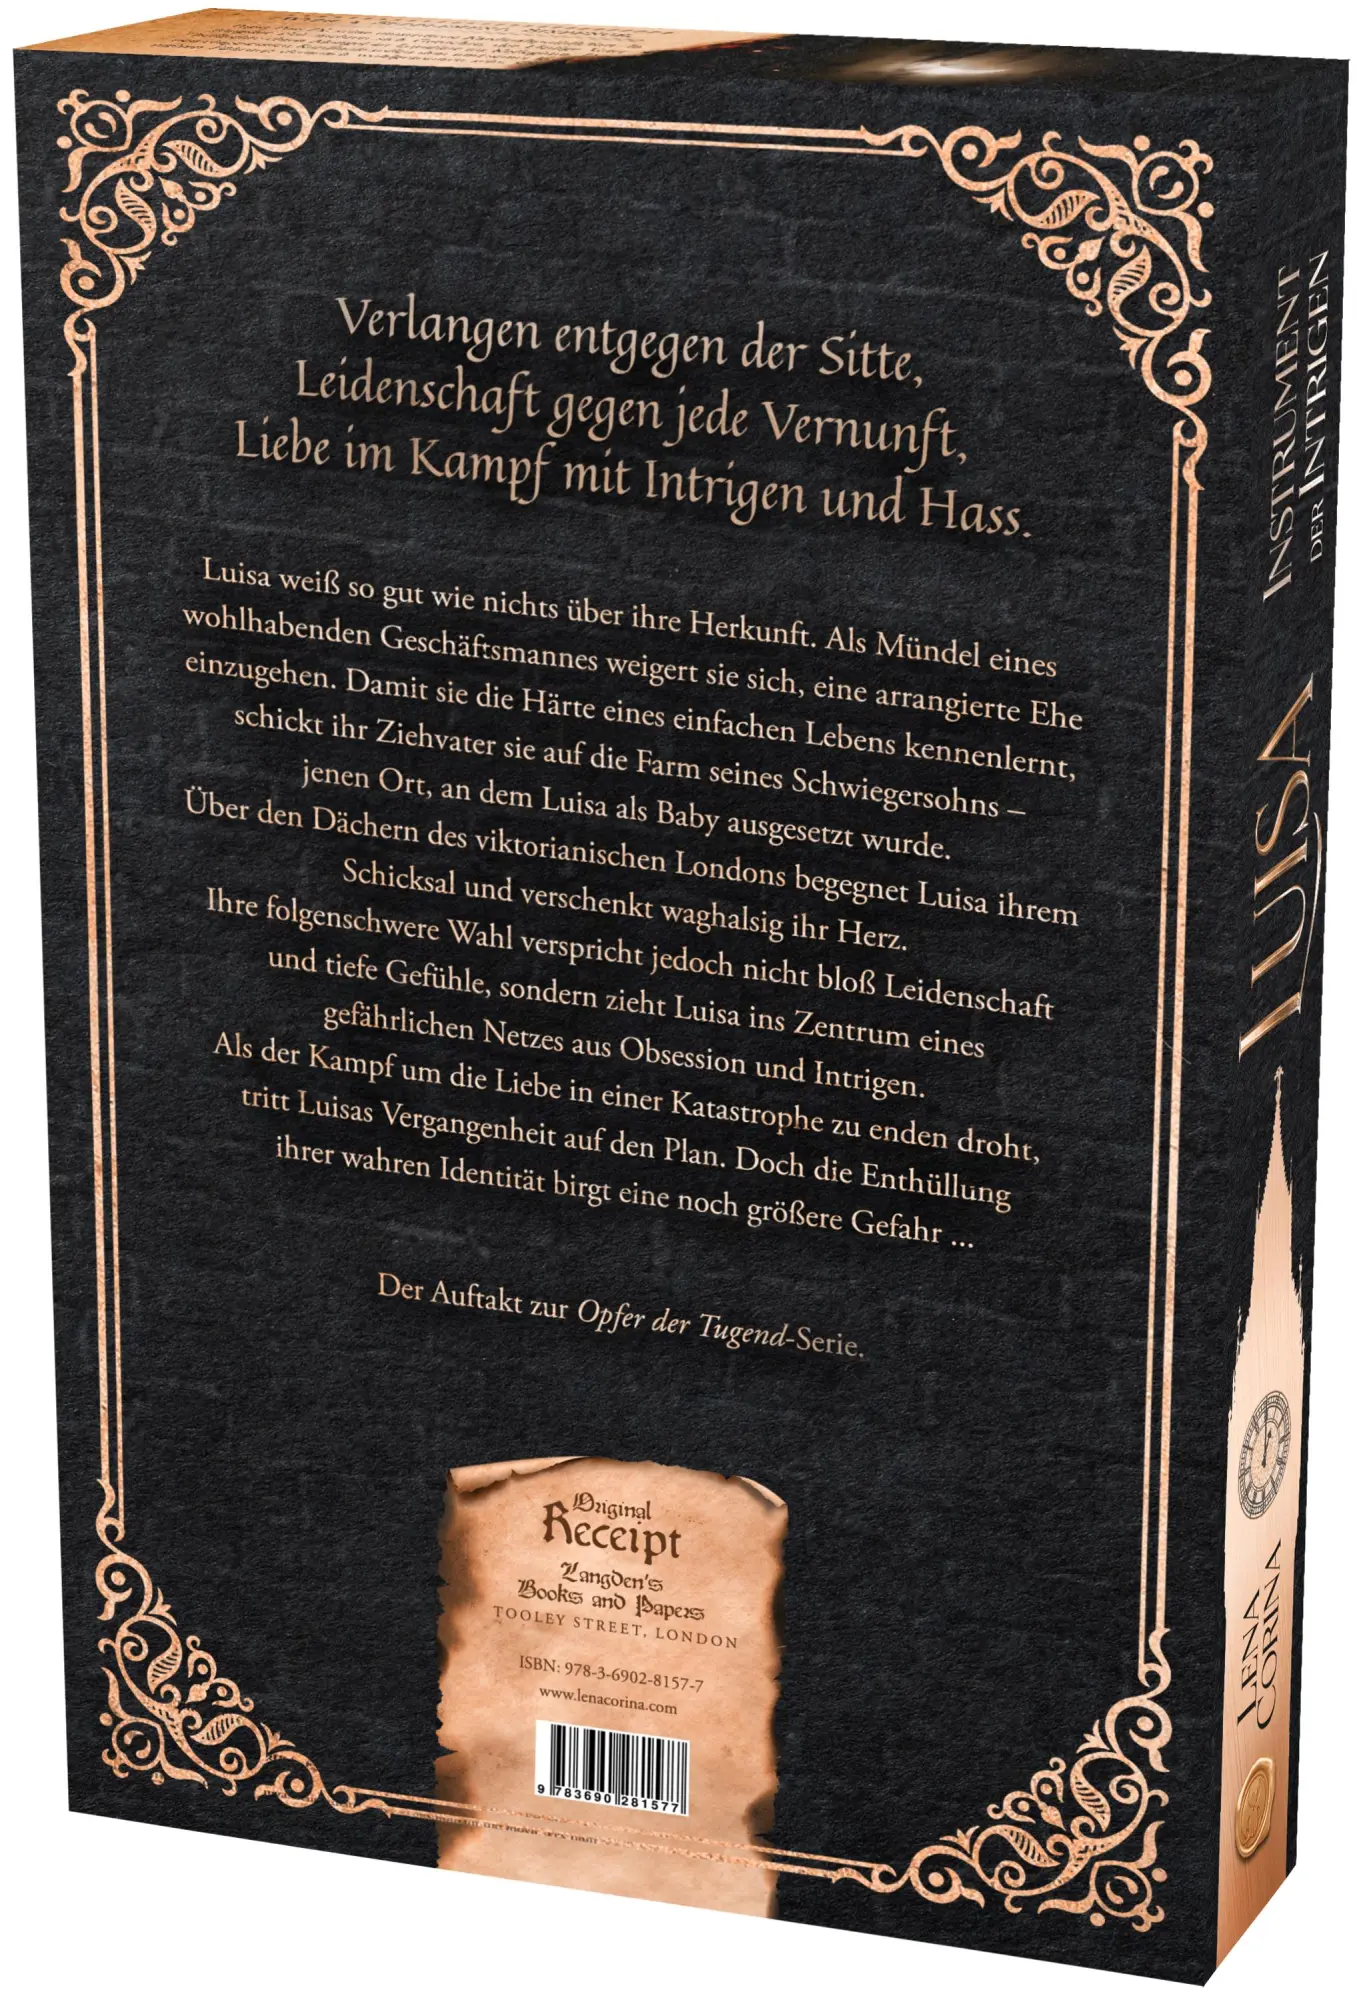 Verlangen entgegen der Sitte,
Leidenschaft gegen jede Vernunft,
Liebe im Kampf mit Intrigen und Hass.
Luisa weiß so gut wie nichts über ihre Herkunft. Als Mündel eines
wohlhabenden Geschäftsmannes weigert sie sich, eine arrangierte Ehe
einzugehen. Damit sie die Härte eines einfachen Lebens kennenlernt,
schickt ihr Ziehvater sie auf die Farm seines Schwiegersohns –
jenen Ort, an dem Luisa als Baby ausgesetzt wurde.
Über den Dächern des viktorianischen Londons begegnet Luisa ihrem
Schicksal und verschenkt waghalsig ihr Herz.
Ihre folgenschwere Wahl verspricht jedoch nicht bloß Leidenschaft
und tiefe Gefühle, sondern zieht Luisa ins Zentrum eines
gefährlichen Netzes aus Obsession und Intrigen.
Als der Kampf um die Liebe in einer Katastrophe zu enden droht,
tritt Luisas Vergangenheit auf den Plan. Doch die Enthüllung
ihrer wahren Identität birgt eine noch größere Gefahr ...
Der Auftakt zur Opfer der Tugend-Serie.
Original
Receipt
Langden's
Books and Papers
TOOLEY STREET, LONDON
ISBN: 978-3-6902-8157-7
www.lenacorina.com
9 783690 281577
INSTRUMENT
DER INTRIGEN
LUISA
LENA
CORINA